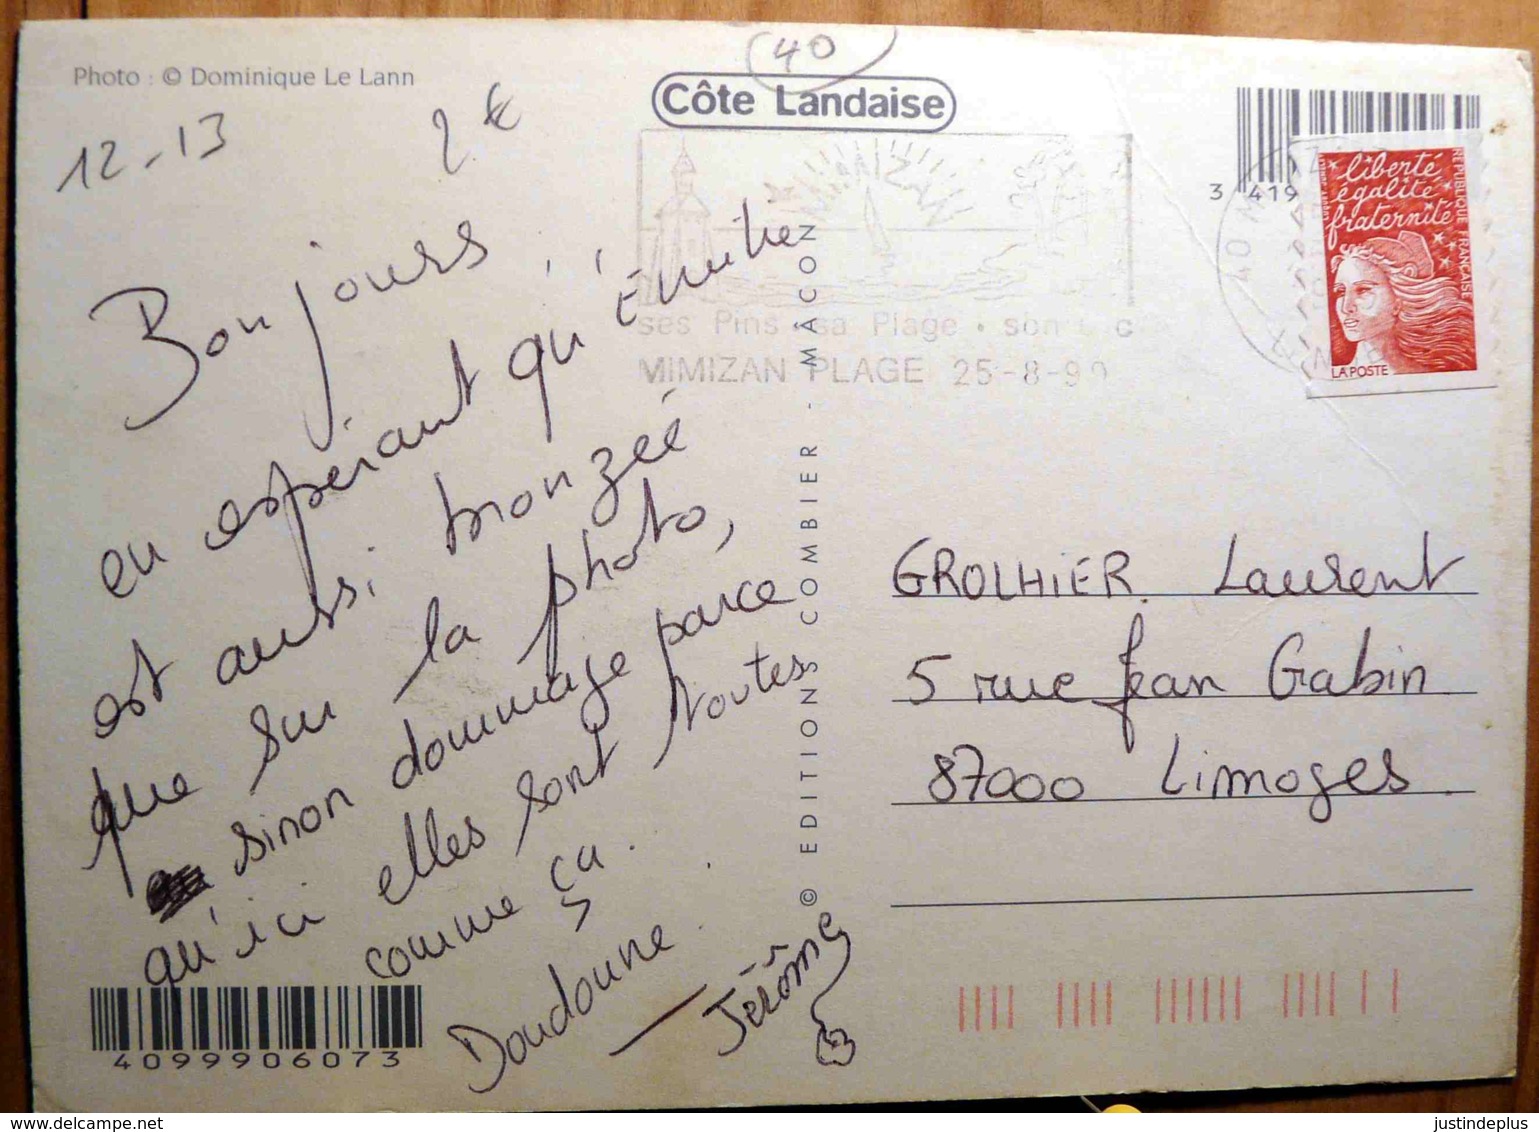 Photo : © Dominique Le Lann
12-13
2 €
40
Côte Landaise
MIMIZAN
ses Pins · sa Plage · son
MIMIZAN PLAGE 25-8-99
3 419
liberté
égalité
fraternité
RÉPUBLIQUE FRANÇAISE
LA POSTE
Bonjours,
en espérant qu'Émilie
est aussi bronzée
que sur la photo,
sinon dommage parce
qu'ici elles sont toutes
comme ça.
Doudoune.
Jérôme
© EDITIONS COMBIER - MÂCON
GROLHIER Laurent
5 rue Jean Gabin
87000 Limoges
4099906073
www.delcampe.net
justindeplus